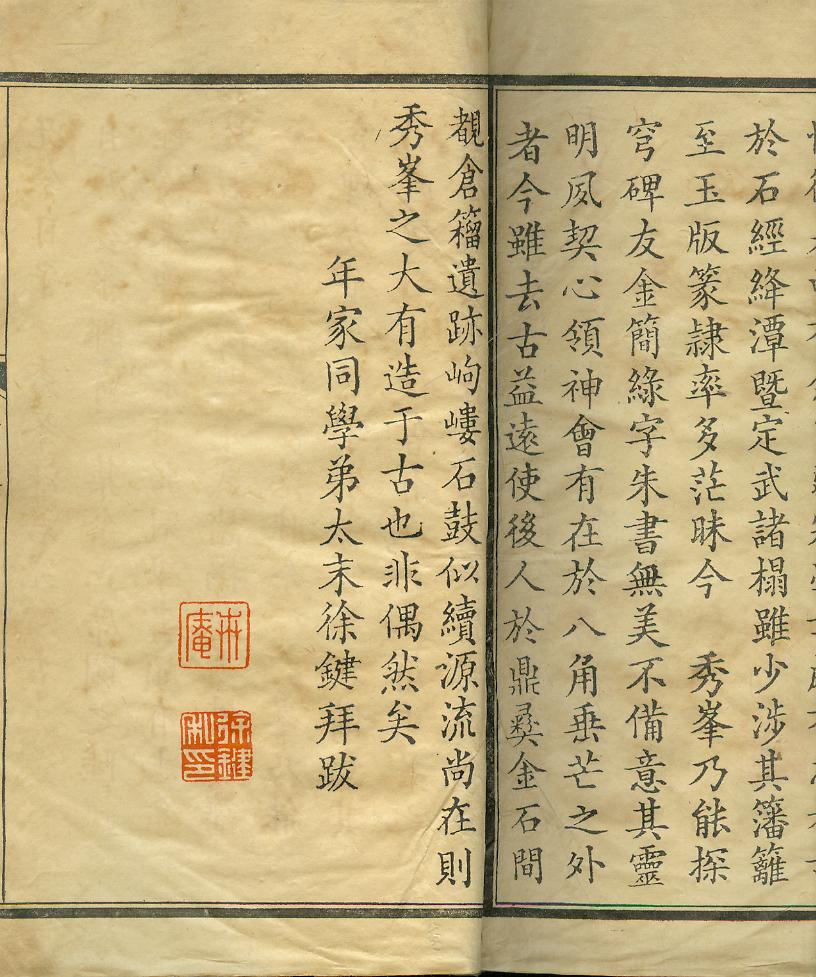 於石經絳潭暨定武諸榻雖少涉其籓籬
至玉版篆隷率多茫昧今　秀峯乃能探
穹碑友金簡綠字朱書無美不備意其靈
明夙契心領神會有在於八角垂芒之外
者今雖去古益遠使後人於鼎彞金石間
覩倉籀遺跡岣嶁石鼓似續源流尚在則
秀峯之大有造于古也非偶然矣
年家同學弟太末徐鍵拜跋
徐鍵私印